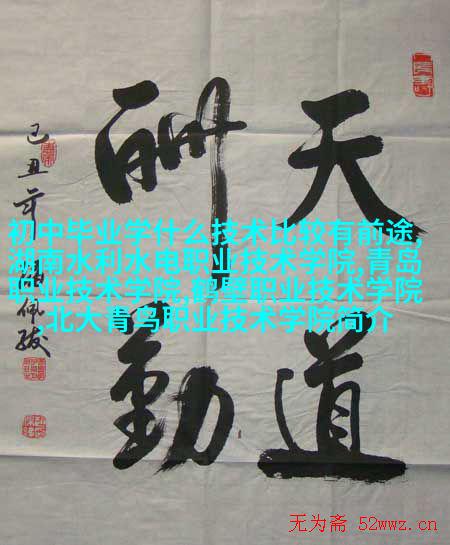 天道
酬勤
己丑年
佩
初中毕业学什么技术比较有前途,
湖南水利水电职业技术学院,青岛
职业技术学院,鹤壁职业技术学院
,北大青鸟职业技术学院简介
无为斋 52wwz.cn